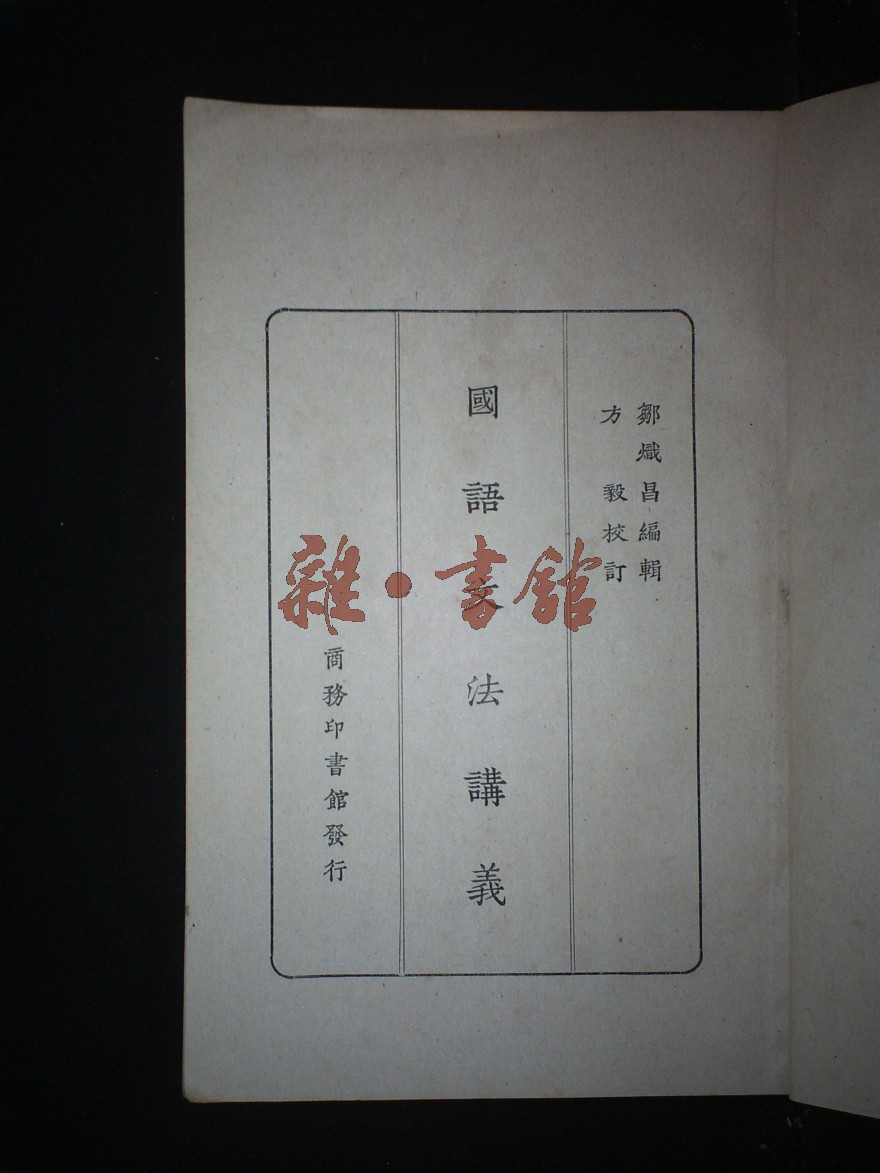 鄒熾昌編輯
方毅校訂
國語文法講義
商務印書館發行
雜·書館